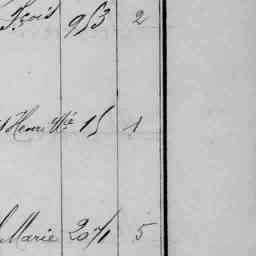 Fçois 953 2
Henri Vte 15 1
Marie 2071 5